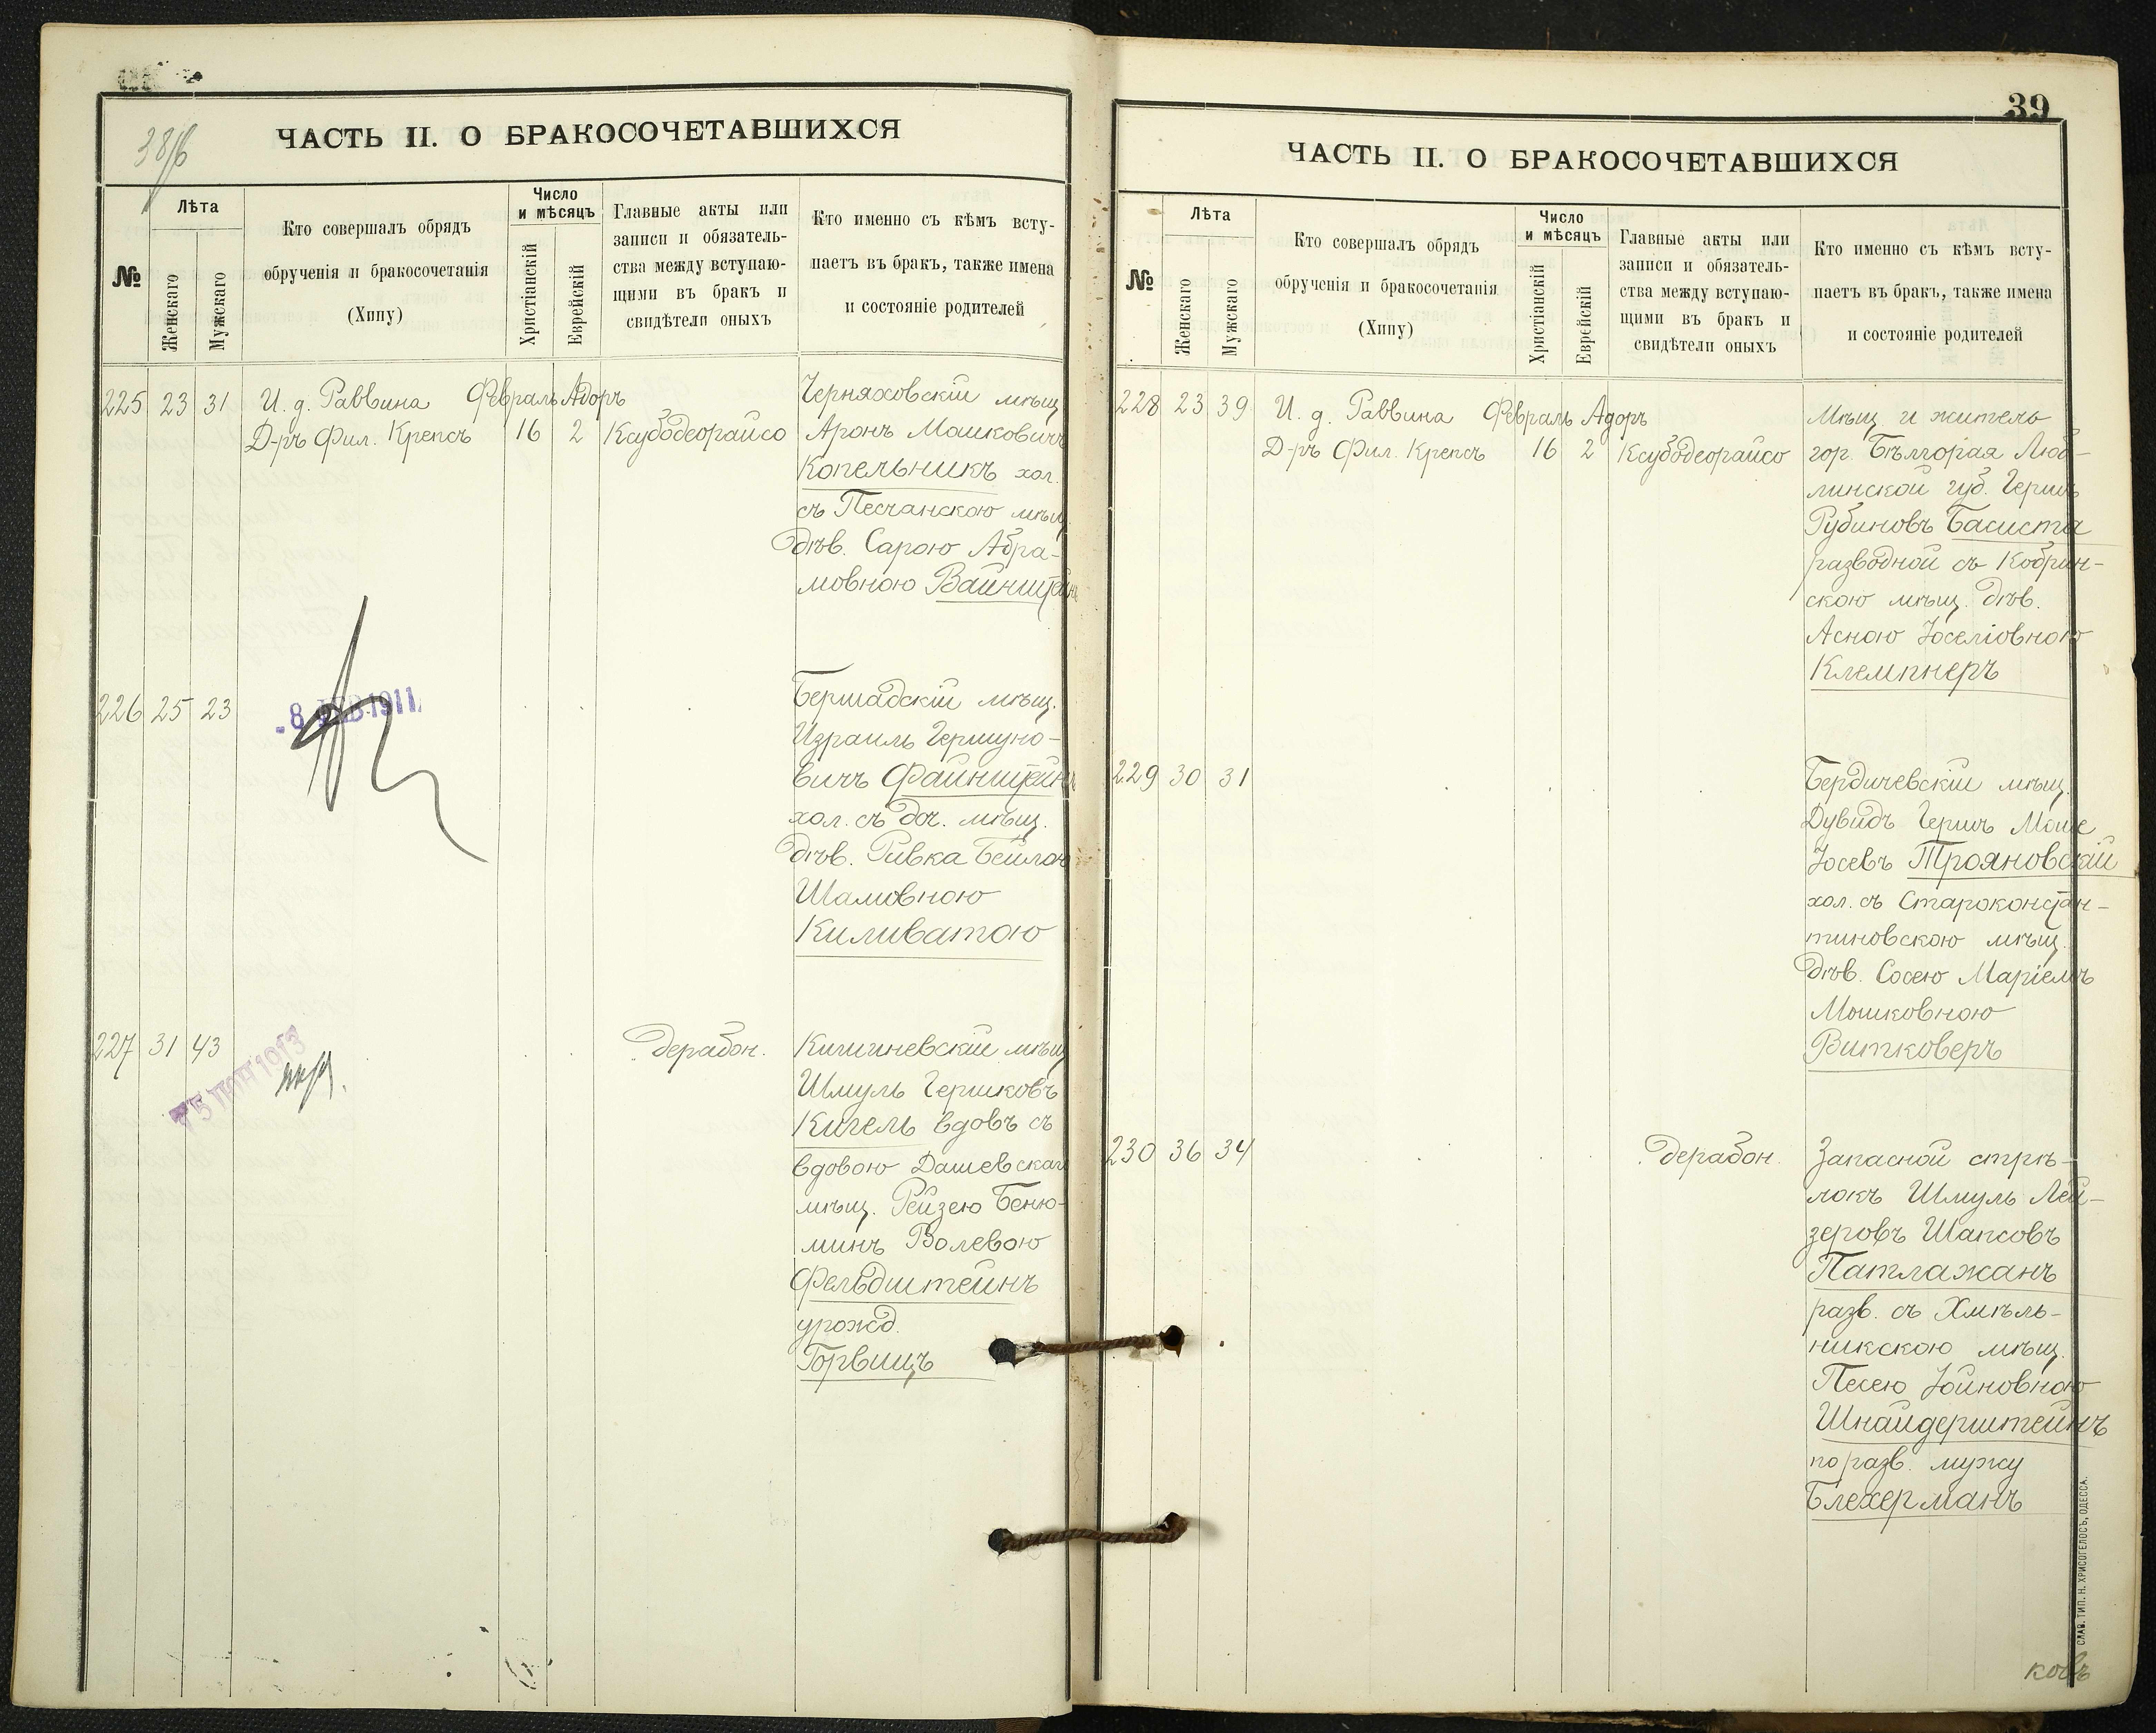 38/б
ЧАСТЬ II. О БРАКОСОЧЕТАВШИХСЯ
№
Лѣта
Женскаго
Мужскаго
Кто совершалъ обрядъ
обрученія и бракосочетанія
(Хипу)
Число
и мѣсяцъ
Христіанскій
Еврейскій
Главные акты или
записи и обязатель-
ства между вступаю-
щими въ бракъ и
свидѣтели оныхъ
Кто именно съ кѣмъ всту-
паетъ въ бракъ, также имена
и состояніе родителей
225 23 31 И. д. Раввина Февраль Адоръ Черняховскій мѣщ.
Д-ръ Фил. Крепсъ 16 2 Ксубодеорайсо Аронъ Мошковичъ
Копельникъ хол.
съ Песчанскою мѣщ.
дѣв. Сарою Абра-
мовною Вайнштейнъ
226 25 23 Бершадскій мѣщ.
-8 ФЕВ 1911
Израиль Гершуно-
вичъ Файнштейнъ
хол. съ доч. мѣщ.
дѣв. Ривка Бейлою
Шамовною
Киливатою
227 31 43 Дерабон. Кишиневскій мѣщ.
Шмуль Гершковъ
Кигель вдовъ съ
вдовою Дашевскаго
мѣщ. Рейзею Беню-
минъ Волевою
Фельдштейнъ
урожд.
Горвицъ
39
ЧАСТЬ II. О БРАКОСОЧЕТАВШИХСЯ
№
Лѣта
Женскаго
Мужскаго
Кто совершалъ обрядъ
обрученія и бракосочетанія
(Хипу)
Число
и мѣсяцъ
Христіанскій
Еврейскій
Главные акты или
записи и обязатель-
ства между вступаю-
щими въ бракъ и
свидѣтели оныхъ
Кто именно съ кѣмъ всту-
паетъ въ бракъ, также имена
и состояніе родителей
228 23 39 И. д. Раввина Февраль Адоръ Мѣщ. и житель
Д-ръ Фил. Крепсъ 16 2 Ксубодеорайсо гор. Бѣлгорая Люб-
линской губ. Гершъ
Рубиновъ Басиста
разводной съ Кобрин-
скою мѣщ. дѣв.
Асною Іоселіовною
Клемпнеръ
229 30 31 Бердичевскій мѣщ.
Дувидъ Гершъ Моше
Іосевъ Трояновскій
хол. съ Староконстан-
тиновскою мѣщ.
дѣв. Сосею Маріемъ
Мошковною
Витковеръ
230 36 34 Дерабон. Запасной стрѣ-
локъ Шмуль Лей-
зеровъ Шапсовъ
Патлажанъ
разв. съ Хмѣль-
никскою мѣщ.
Песею Іойновною
Шнайдерштейнъ
по разв. мужу
Блехерманъ
СЛАВ. ТИП. Н. ХРИСОГЕЛОСЪ, ОДЕССА.